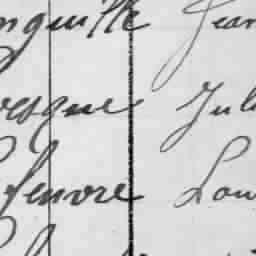 nquille Jean
vesque Juli
fenvre Lou